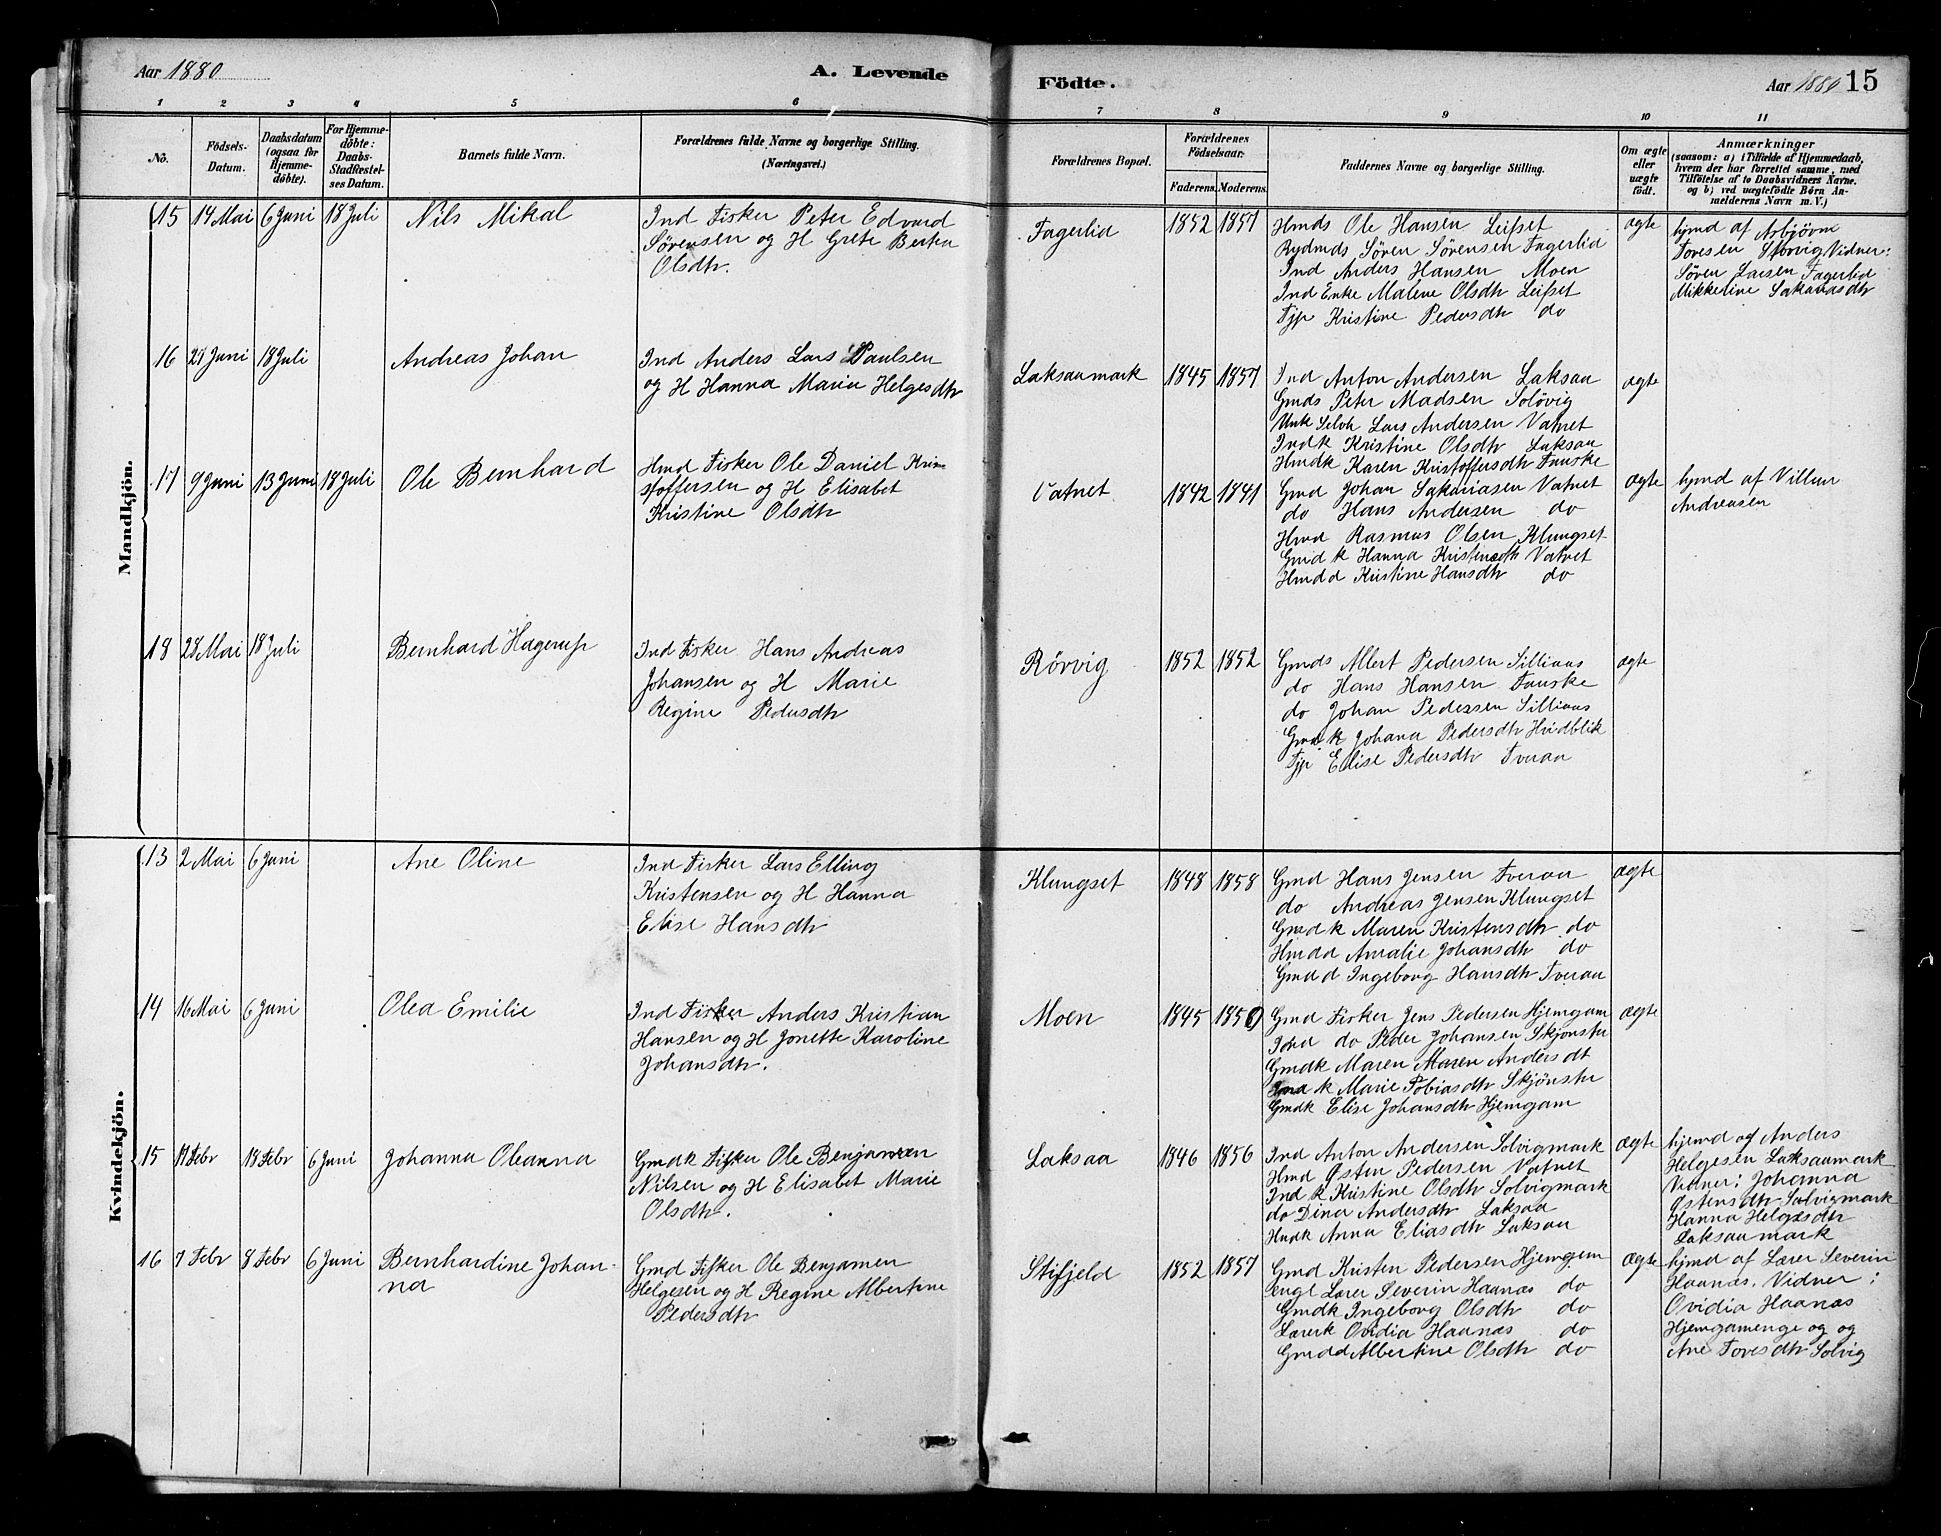 Aar 1880
A. Levende
Födte.
Aar 1880 15
1 2 3 4 5 6 7 8 9 10 11
No.
Födsels-
Datum.
Daabsdatum
(ogsaa for
Hjemme-
döbte).
For Hjemme-
döbte:
Daabs-
Stadfæstel-
ses Datum.
Barnets fulde Navn.
Forældrenes fulde Navne og borgerlige Stilling.
(Næringsvei.)
Forældrenes Bopæl.
Forældrenes
Födselsaar.
Faderens. Moderens.
Faddernes Navne og borgerlige Stilling.
Om ægte
eller
uægte
födt.
Anmærkninger
(saasom: a) i Tilfælde af Hjemmedaab,
hvem der har forrettet samme, med
Tilföielse af to Daabsvidners Navne.
og b) ved uægtefödte Börn An-
melderens Navn m. V.)
Mandkjön.
15 14 Mai 6 Juni 18 Juli Nils Mikal
Ind Fisker Peter Edvard
Sörensen og H Grete Berta
Olsdtr.
Fagerlid 1852 1857
Hmds Ole Hansen Leifset
Rydmds Sören Sörensen Fagerlid
Ind Anders Hansen Moen
Ind Enke Malene Olsdtr Leifset
Tjp Kristine Pedersdtr do
ægte
hjmd af Asbjövn
Toresen Storvig Vidner:
Sören Larsen Fagerlid
Mikkeline Sakariasdtr
16 27 Juni 18 Juli Andreas Johan
Ind Anders Lars Paulsen
og H Hanna Maria Helgesdtr
Laksaamark 1845 1857
Ind Anton Andersen Laksaa
Gmds Peter Madsen Solövig
Unk Selvh Lars Andersen Vatnet
Indk Kristine Olsdtr Laksaa
Hmdk Karen Kristoffersdtr Fauske
ægte
17 9 Juni 13 Juni 18 Juli Ole Bernhard
Hmd Fisker Ole Daniel Kri-
stoffersen og H Elisabet
Kristine Olsdtr
Vatnet 1842 1841
Gmd Johan Sakariasen Vatnet
do Hans Andersen do
Hmd Rasmus Olsen Klungset
Gmd k Hanna Kristensdtr Vatnet
Hmdd Kristine Hansdtr do
ægte
hjmd af Villum
Andreasen
18 28 Mai 18 Juli Bernhard Hagerup
Ind Fisker Hans Andreas
Johansen og H Marie
Regine Pedersdtr
Rörvig 1852 1852
Gmds Albert Pedersen Silliaas
do Hans Hansen Fauske
do Johan Pedersen Silliaas
Gmd k Johana Pedersdtr Hvidblik
Tjp Elise Pedersdtr Tveraa
ægte
Kvindekjön.
13 2 Mai 6 Juni Ane Oline
Ind Fisker Lars Elling
Kristensen og H Hanna
Elise Hansdtr
Klungset 1848 1858
Gmd Hans Jensen Tveraa
do Andreas Jensen Klungset
Gmdk Maren Kristensdtr do
Hmdd Amalie Johansdtr do
Gmd d Ingeborg Hansdtr Tveraa
ægte
14 16 Mai 6 Juni Olea Emilie
Ind Fisker Anders Kristian
Hansen og H Jonette Karoline
Johansdtr.
Moen 1845 1850
Gmd Fisker Jens Pedersen Hjemgam
Ind do Peder Johansen Skjönstu
Gmdk Maren Maren Andersdt
Gmd k Marie Tobiasdtr Skjönstu
Gmdk Elise Johansdtr Hjemgam
ægte
15 17 Febr 18 Febr 6 Juni Johanna Oleanna
Gmdk Fisker Ole Benjamen
Nilsen og H Elisabet Marie
Olsdtr.
Laksaa 1846 1856
Ind Anton Andersen Solvigmark
Hmd Östen Pedersen Vatnet
Ind k Kristine Olsdtr Solvigmark
do Dina Andersdtr Laksaa
Hmdk Anna Eliasdtr Laksaa
ægte
hjemd af Anders
Helgesen Laksaamark
Vidner: Johanna
Östensdtr Solvigmark
Hanna Helgesdtr
Laksaamark
16 7 Febr 8 Febr 6 Juni Bernhardine Johan-
na
Gmd Fisker Ole Benjamen
Helgesen og H Regine Albertine
Pedersdtr
Stifjeld 1852 1857
Gmd Kristen Pedersen Hjemgam
Lærer Severin Haanæs do
Gmdk Ingeborg Olsdtr do
Lærerk Ovidia Haanæs do
Gmdd Albertine Olsdtr do
Ægte
hjmd af Lærer Severin
Haanæs. Vidner:
Ovidia Haanæs
Hjemgamenge og og
Ane Toresdtr Solvig